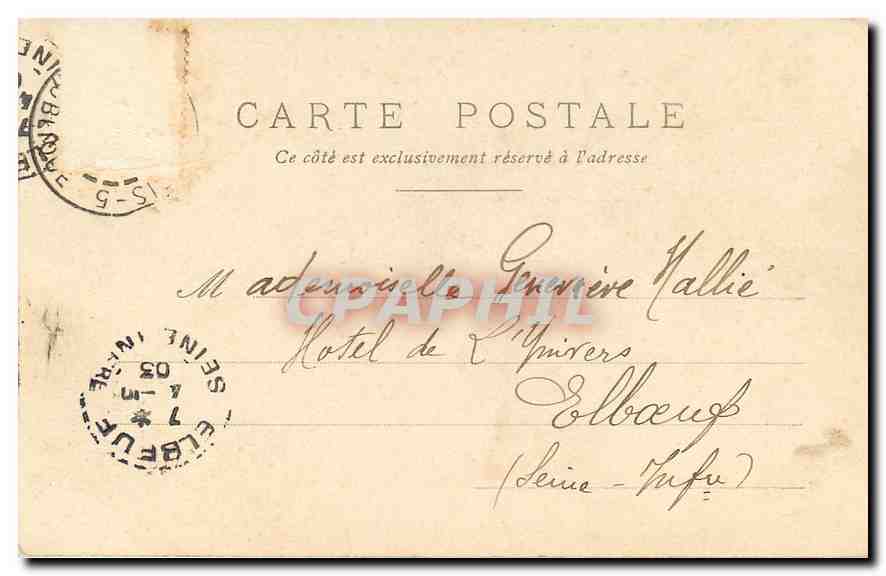 CARTE POSTALE
Ce côté est exclusivement réservé à l'adresse
Mademoiselle Geneviève Hallié
Hotel de L'Univers
Elboeuf
(Seine-Infre)
CPAPHIL
ELBEUF
SEINE INFRE
7 *
4 -5
03
IS-5